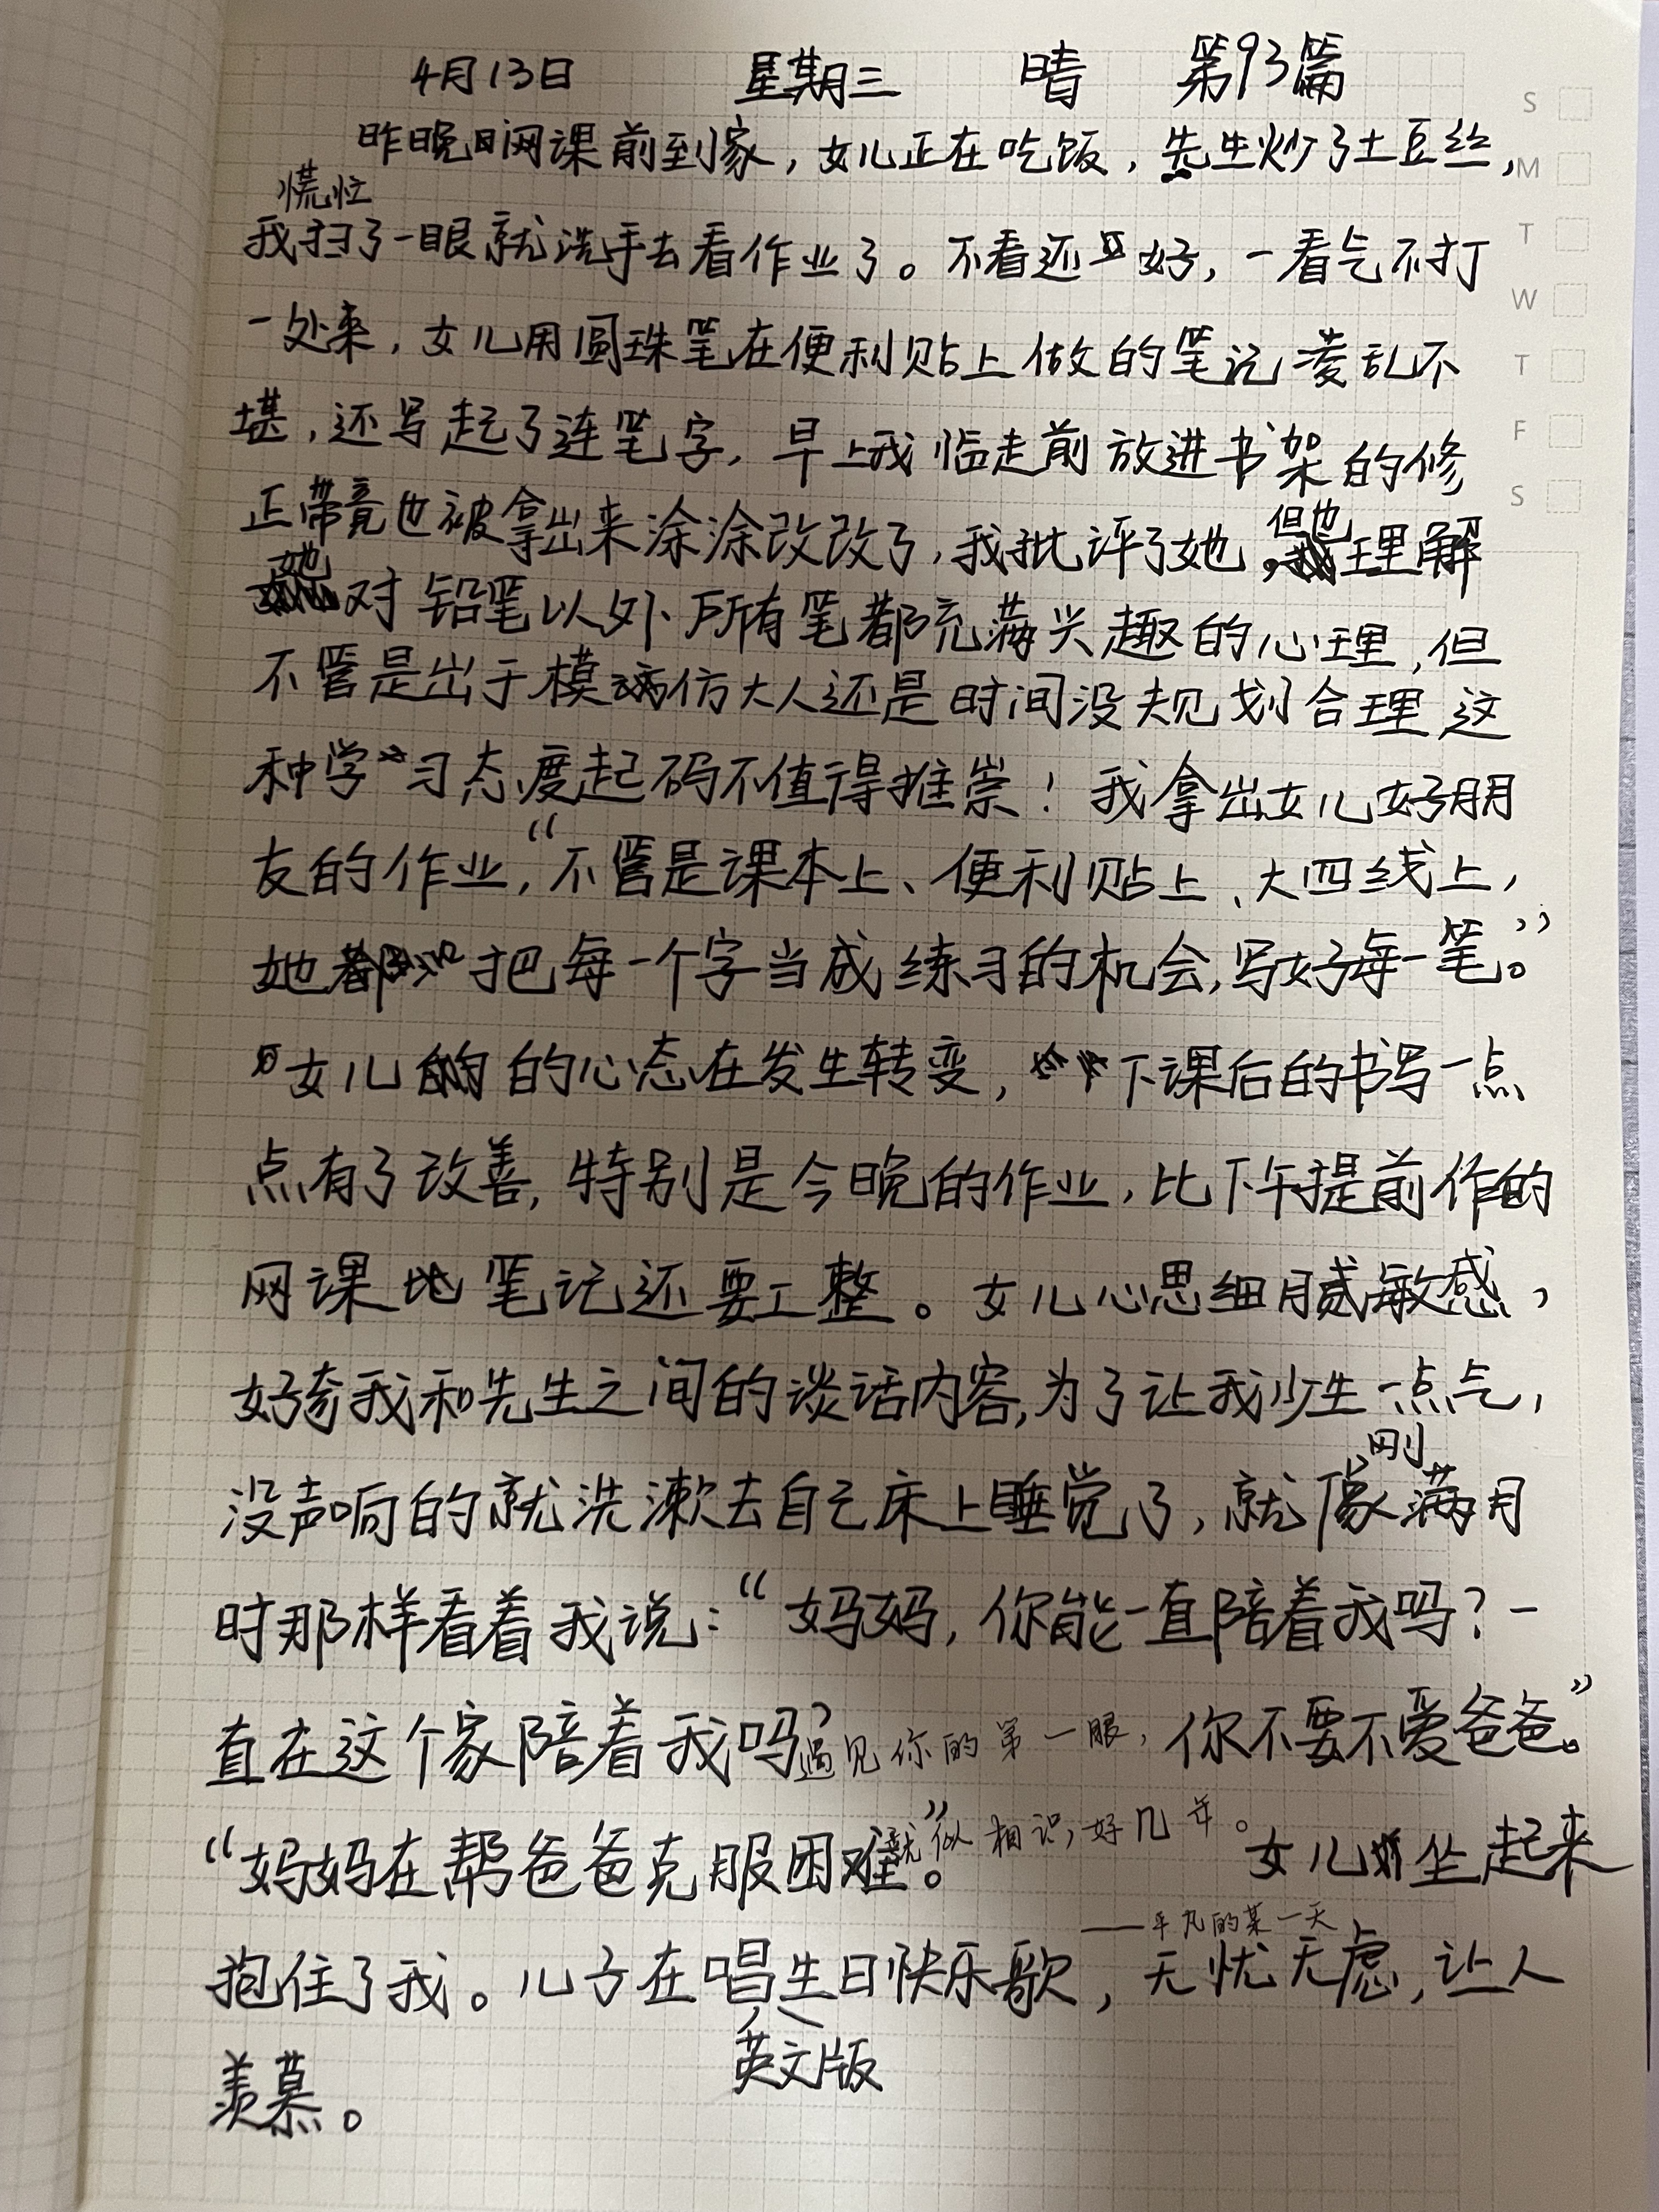 4月13日 星期三 晴 第93篇
昨晚网课前到家，女儿正在吃饭，先生炒了土豆丝，
慌忙
我扫了一眼就洗手去看作业了。不看还好，一看气不打
一处来，女儿用圆珠笔在便利贴上做的笔记凌乱不
堪，还写起了连笔字，早上我临走前放进书架的修
正带竟也被拿出来涂涂改改了，我批评了她，但也理解
她对铅笔以外所有笔都充满兴趣的心理，但
不管是出于模仿大人还是时间没规划合理这
种学习态度起码不值得推崇！我拿出女儿好朋
友的作业，“不管是课本上、便利贴上、大四线上，
她把每一个字当成练习的机会，写好每一笔。”
女儿的心态在发生转变，下课后的书写一点
点有了改善，特别是今晚的作业，比下午提前作的
网课笔记还要工整。女儿心思细腻敏感，
好奇我和先生之间的谈话内容，为了让我少生一点气，
没声响的就洗漱去自己床上睡觉了，就像刚满月
时那样看着我说：“妈妈，你能一直陪着我吗？一
直在这个家陪着我吗？你不要不爱爸爸。”
遇见你的第一眼，
“妈妈在帮爸爸克服困难”。女儿坐起来
就似相识好几年。
——平凡的某一天
抱住了我。儿子在唱生日快乐歌，无忧无虑，让人
英文版
羡慕。